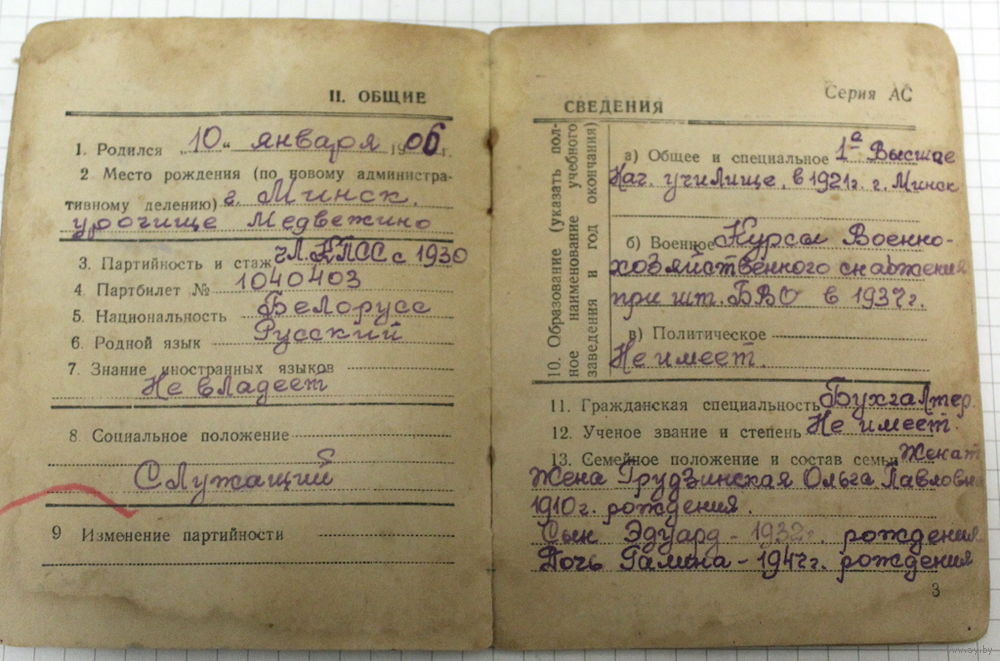 II. ОБЩИЕ
1. Родился „10“ января 1906 г.
2 Место рождения (по новому администра-
тивному делению) г. Минск,
урочище Медвежино
3. Партийность и стаж чл. КПСС с 1930
4 Партбилет № 1040403
5. Национальность Белорусс
6. Родной язык Русский
7. Знание иностранных языков
Не владеет
8. Социальное положение
Служащий
9 Изменение партийности
СВЕДЕНИЯ
Серия АС
10. Образование (указать пол-
ное наименование учебного
заведения и год окончания)
а) Общее и специальное 1ᵉ Высшее
Нач. училище, в 1921г. г. Минск
б) Военное Курсы Военно-
хозяйственного снабжения
при шт. БВО в 1937г.
в) Политическое
Не имеет.
11. Гражданская специальность Бухгалтер.
12. Ученое звание и степень Не имеет.
13. Семейное положение и состав семьи Женат
Жена Грудзинская Ольга Павловн
1910 г. рождения.
Сын Эдуард - 1932г. рождения
Дочь Галина - 1947г. рождения
3
www.ay.by